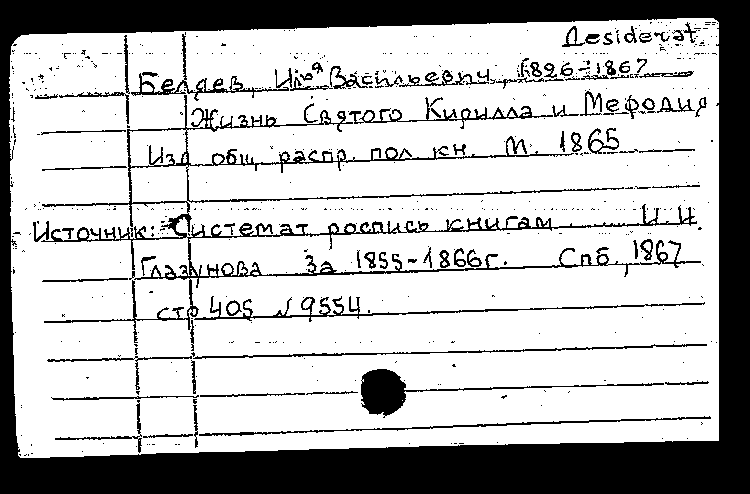 Desiderat.
Беляев, Илья Васильевич, 1826-1867
Жизнь Святого Кирилла и Мефодия.
Изд общ распр. пол кн. М. 1865
Источник: Системат роспись книгам ...... И.И.
Глазунова За 1855-1866г. Спб., 1867
стр 405 № 9554.